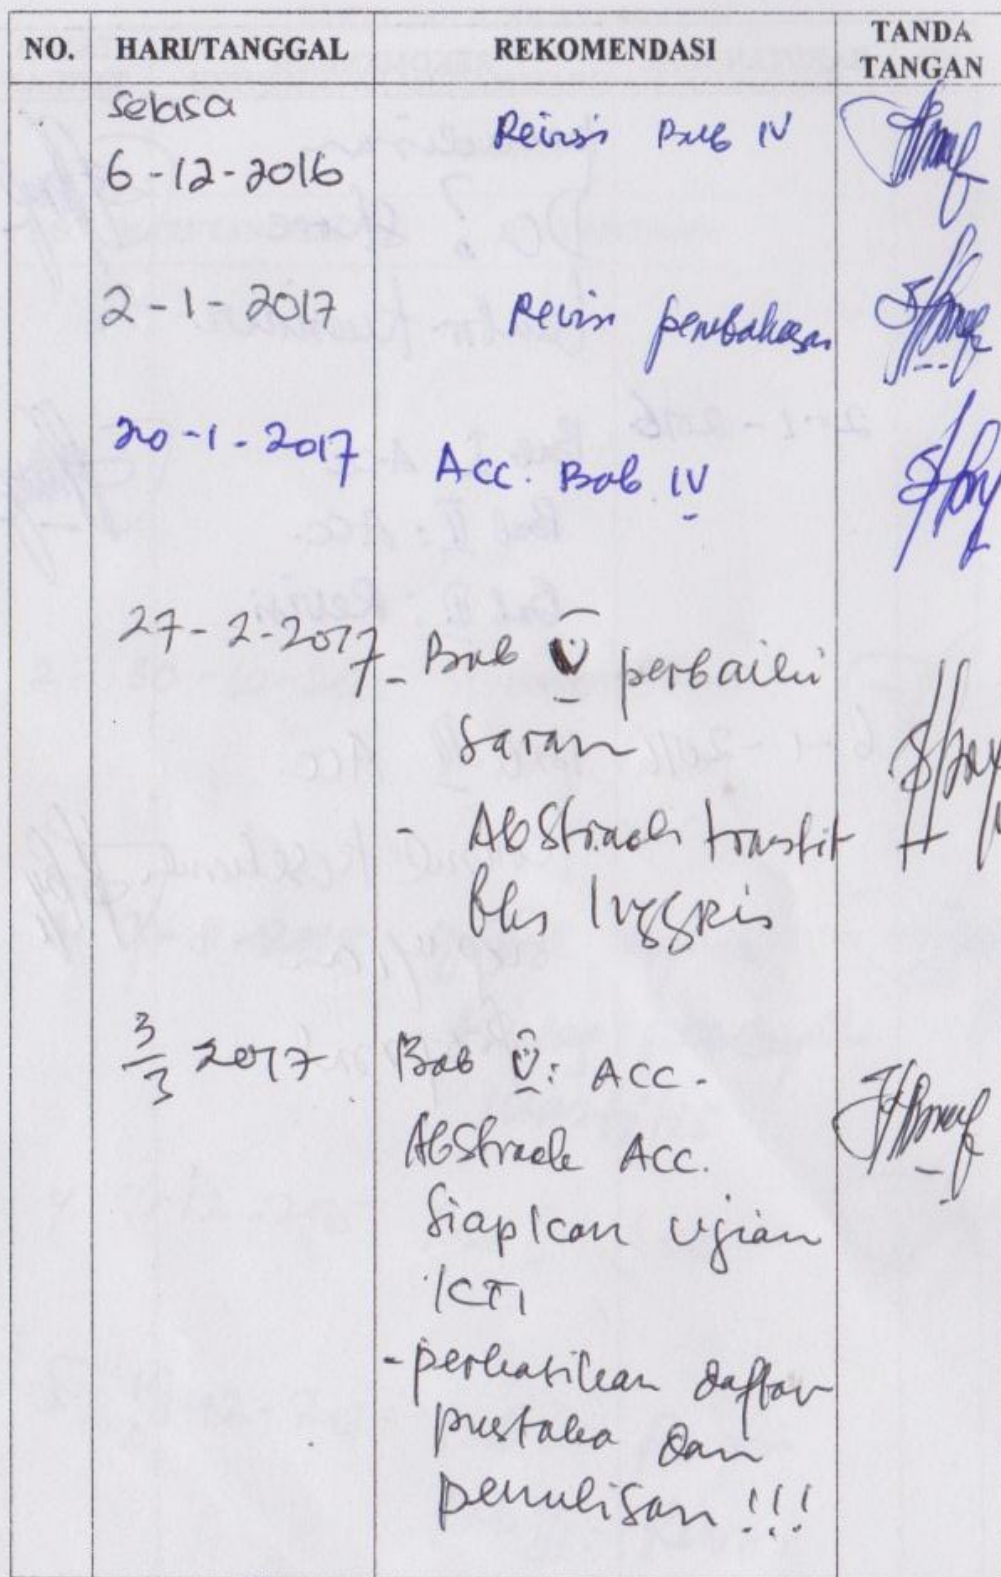 NO. HARI/TANGGAL REKOMENDASI TANDA TANGAN
selasa
6-12-2016 Revisi Bab IV
2-1-2017 Revisi pembahasan
20-1-2017 Acc. Bab IV
27-2-2017 - Bab V perbaiki
saran
- Abstrack
bhs Inggris
3/3 2017 Bab V: ACC.
Abstrack ACC.
Siapkan Ujian
KTI
- perhatikan daftar
pustaka dan
penulisan !!!